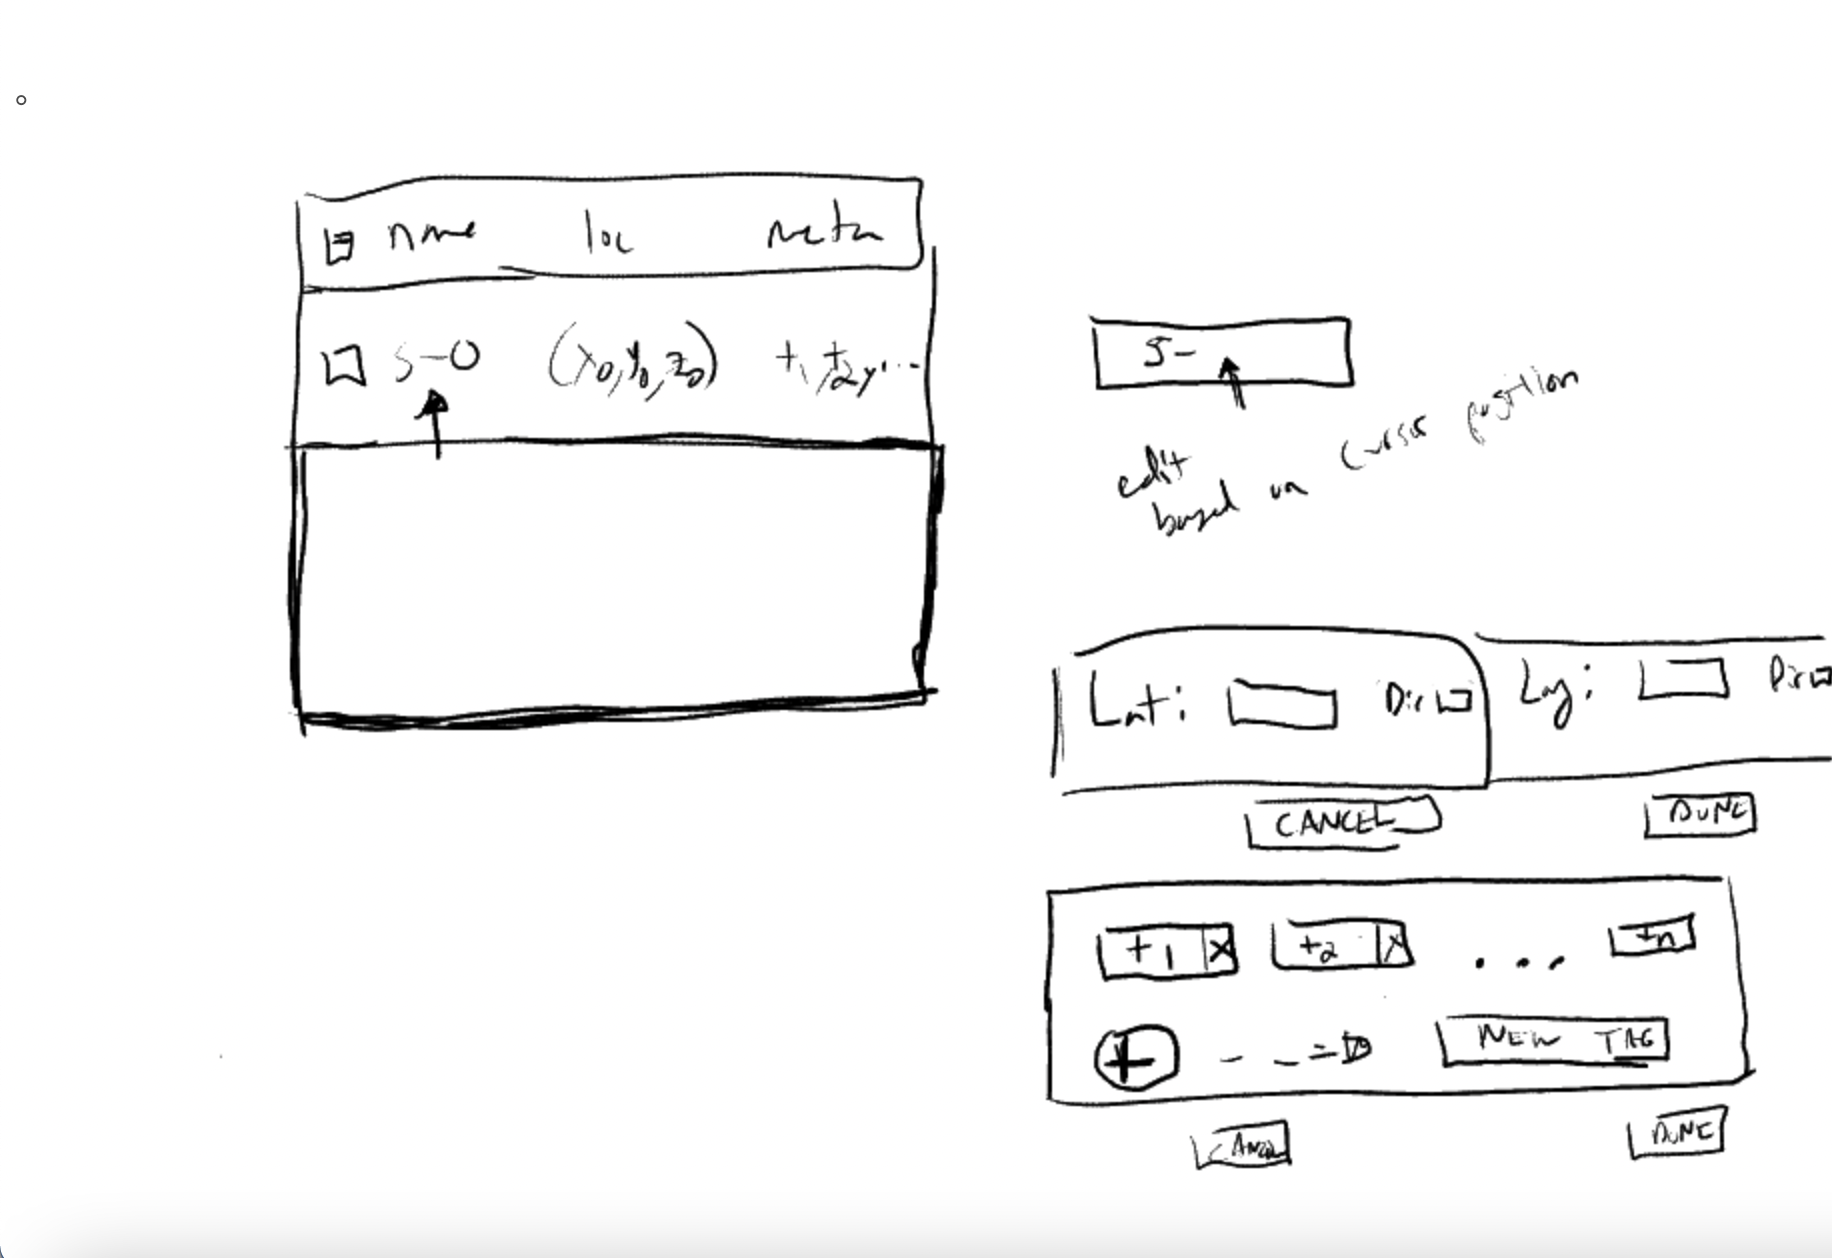 name loc meta
S-0 (x0,y0,z0) t1,t2,...
S-
edit
based on cursor position
Lat: Dir Lng: Dir
CANCEL DONE
t1 X t2 X ... tn
+ NEW TAG
CANCEL DONE